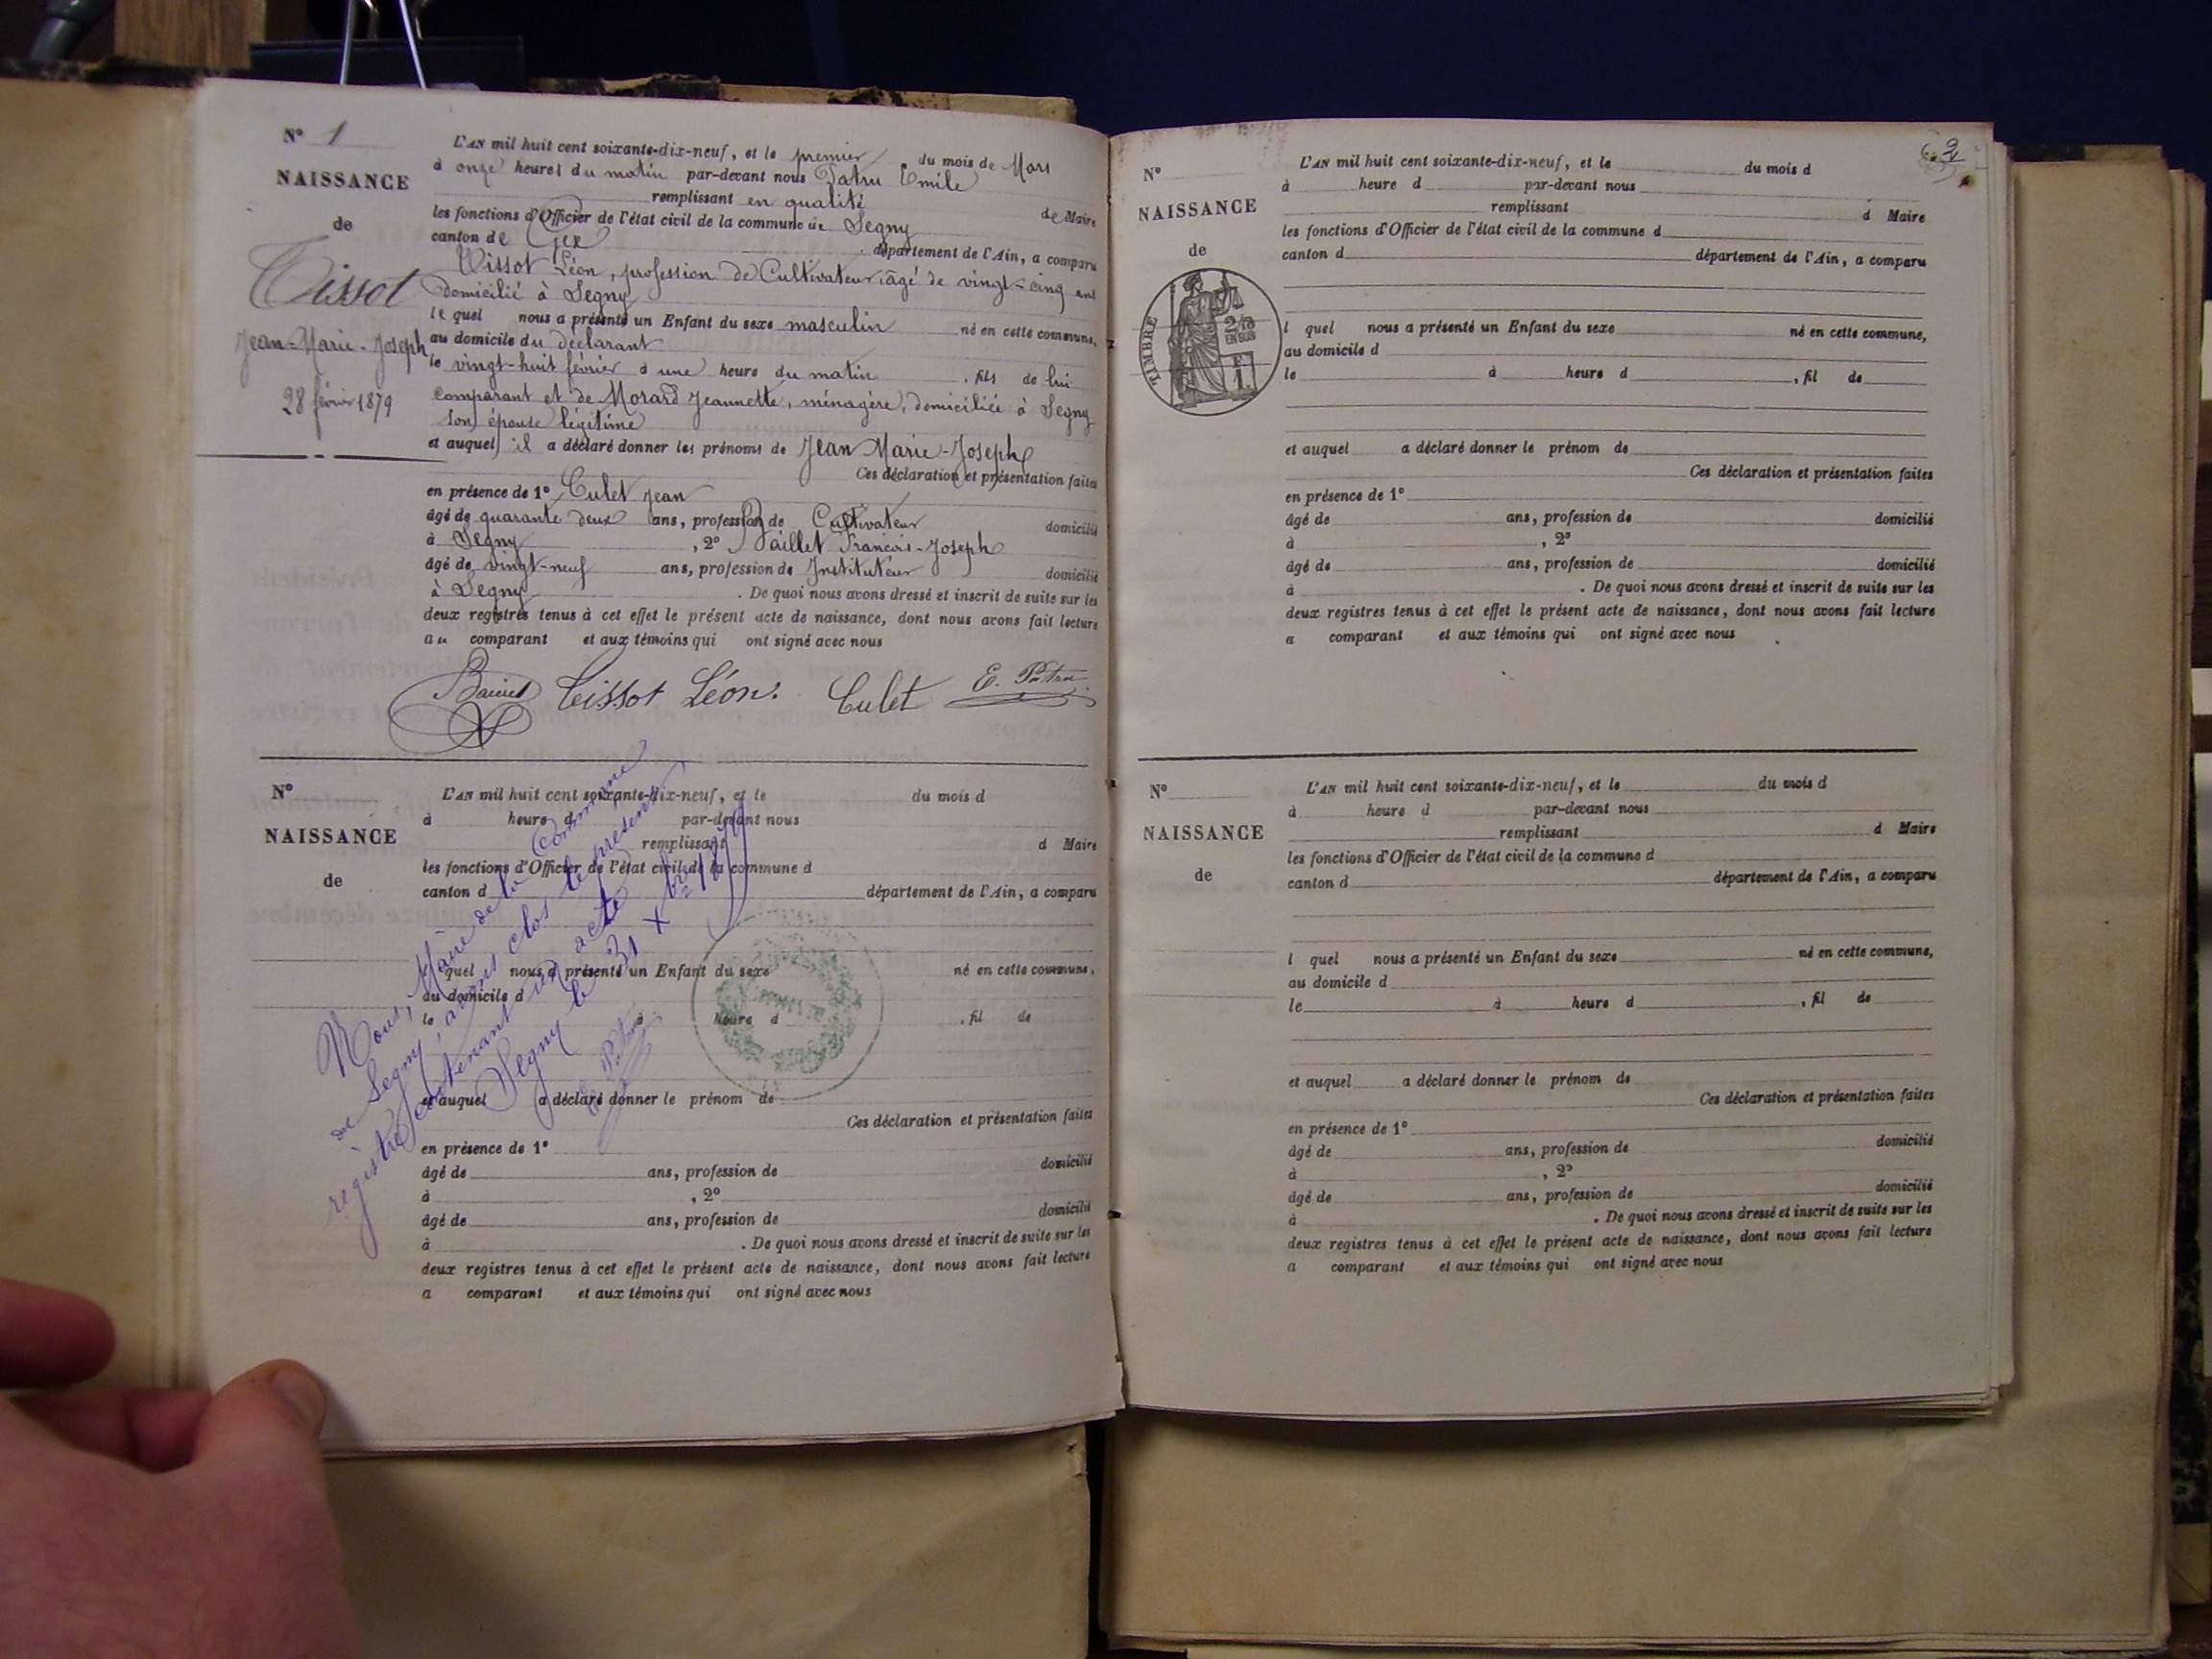 N° 1
NAISSANCE
de
Tissot
Jean-Marie-Joseph
28 février 1879
L'AN mil huit cent soixante-dix-neuf, et le premier du mois de Mars
à onze heures du matin par-devant nous Patru Emile
remplissant en qualité de Maire
les fonctions d'Officier de l'état civil de la commune de Segny
canton de Gex département de l'Ain, a comparu
Tissot Léon, profession de Cultivateur, âgé de vingt-cinq ans
domicilié à Segny
lequel nous a présenté un Enfant du sexe masculin né en cette commune,
au domicile du déclarant
le vingt-huit février à une heure du matin, fils de lui
comparant et de Morard Jeannette, ménagère, domiciliée à Segny
son épouse légitime
et auquel il a déclaré donner les prénoms de Jean Marie-Joseph
Ces déclaration et présentation faites
en présence de 1° Culet Jean
âgé de quarante deux ans, profession de Cultivateur domicilié
à Segny, 2° Baillet François-Joseph
âgé de vingt-neuf ans, profession de Instituteur domicilié
à Segny. De quoi nous avons dressé et inscrit de suite sur les
deux registres tenus à cet effet le présent acte de naissance, dont nous avons fait lecture
au comparant et aux témoins qui ont signé avec nous
Tissot Léon. Culet E. Patru
N°
NAISSANCE
de
L'AN mil huit cent soixante-dix-neuf, et le du mois d
à heure d par-devant nous
remplissant d Maire
les fonctions d'Officier de l'état civil de la commune d
canton d département de l'Ain, a comparu
l quel nous a présenté un Enfant du sexe né en cette commune,
au domicile d
le à heure d , fil de
et auquel a déclaré donner le prénom de
Ces déclaration et présentation faites
en présence de 1°
âgé de ans, profession de domicilié
à , 2°
âgé de ans, profession de domicilié
à . De quoi nous avons dressé et inscrit de suite sur les
deux registres tenus à cet effet le présent acte de naissance, dont nous avons fait lecture
a comparant et aux témoins qui ont signé avec nous
Nous, Maire de la Commune
de Segny, avons clos le présent
registre contenant un acte
Segny le 31 Xbre 1879
E. Patru
2
N°
NAISSANCE
de
TIMBRE
2/10
EN SUS
F.
1.
L'AN mil huit cent soixante-dix-neuf, et le du mois d
à heure d par-devant nous
remplissant d Maire
les fonctions d'Officier de l'état civil de la commune d
canton d département de l'Ain, a comparu
l quel nous a présenté un Enfant du sexe né en cette commune,
au domicile d
le à heure d , fil de
et auquel a déclaré donner le prénom de
Ces déclaration et présentation faites
en présence de 1°
âgé de ans, profession de domicilié
à , 2°
âgé de ans, profession de domicilié
à . De quoi nous avons dressé et inscrit de suite sur les
deux registres tenus à cet effet le présent acte de naissance, dont nous avons fait lecture
a comparant et aux témoins qui ont signé avec nous
N°
NAISSANCE
de
L'AN mil huit cent soixante-dix-neuf, et le du mois d
à heure d par-devant nous
remplissant d Maire
les fonctions d'Officier de l'état civil de la commune d
canton d département de l'Ain, a comparu
l quel nous a présenté un Enfant du sexe né en cette commune,
au domicile d
le à heure d , fil de
et auquel a déclaré donner le prénom de
Ces déclaration et présentation faites
en présence de 1°
âgé de ans, profession de domicilié
à , 2°
âgé de ans, profession de domicilié
à . De quoi nous avons dressé et inscrit de suite sur les
deux registres tenus à cet effet le présent acte de naissance, dont nous avons fait lecture
a comparant et aux témoins qui ont signé avec nous